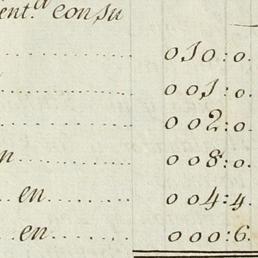 ent.ᵃ consu
010:0.
001:0.
002:0.
n 008:0.
en 004:4.
en 000:6.